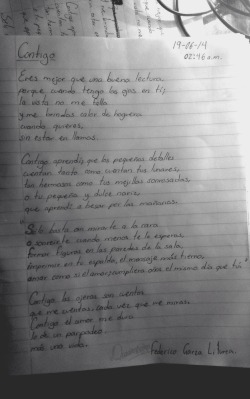 19-06-14
02:46 a.m.
Contigo
Eres mejor que una buena lectura
porque cuando tengo los ojos en tí,
la vista no me falla
y me brindas calor de hoguera
cuando quieres,
sin estar en llamas.
Contigo aprendí, que los pequeños detalles
cuentan tanto como cuentan tus lunares,
tus hermosas como tus mejillas
o tu pequeña y dulce nariz,
que aprendí a besar por las mañanas.
Sólo basta con mirarte a la cara
o sonreirte, cuando menos te lo esperas,
formar figuras en las paredes de la sala,
imprimir en tu espalda, el mensaje más tierno,
amar como si el amor cumpliera años el mismo día que tú
Contigo las ojeras son cuentos
que me cuentas, cada vez que me miras.
Contigo el amor me dura
lo de un parpadeo
más una vida.
Federico García L